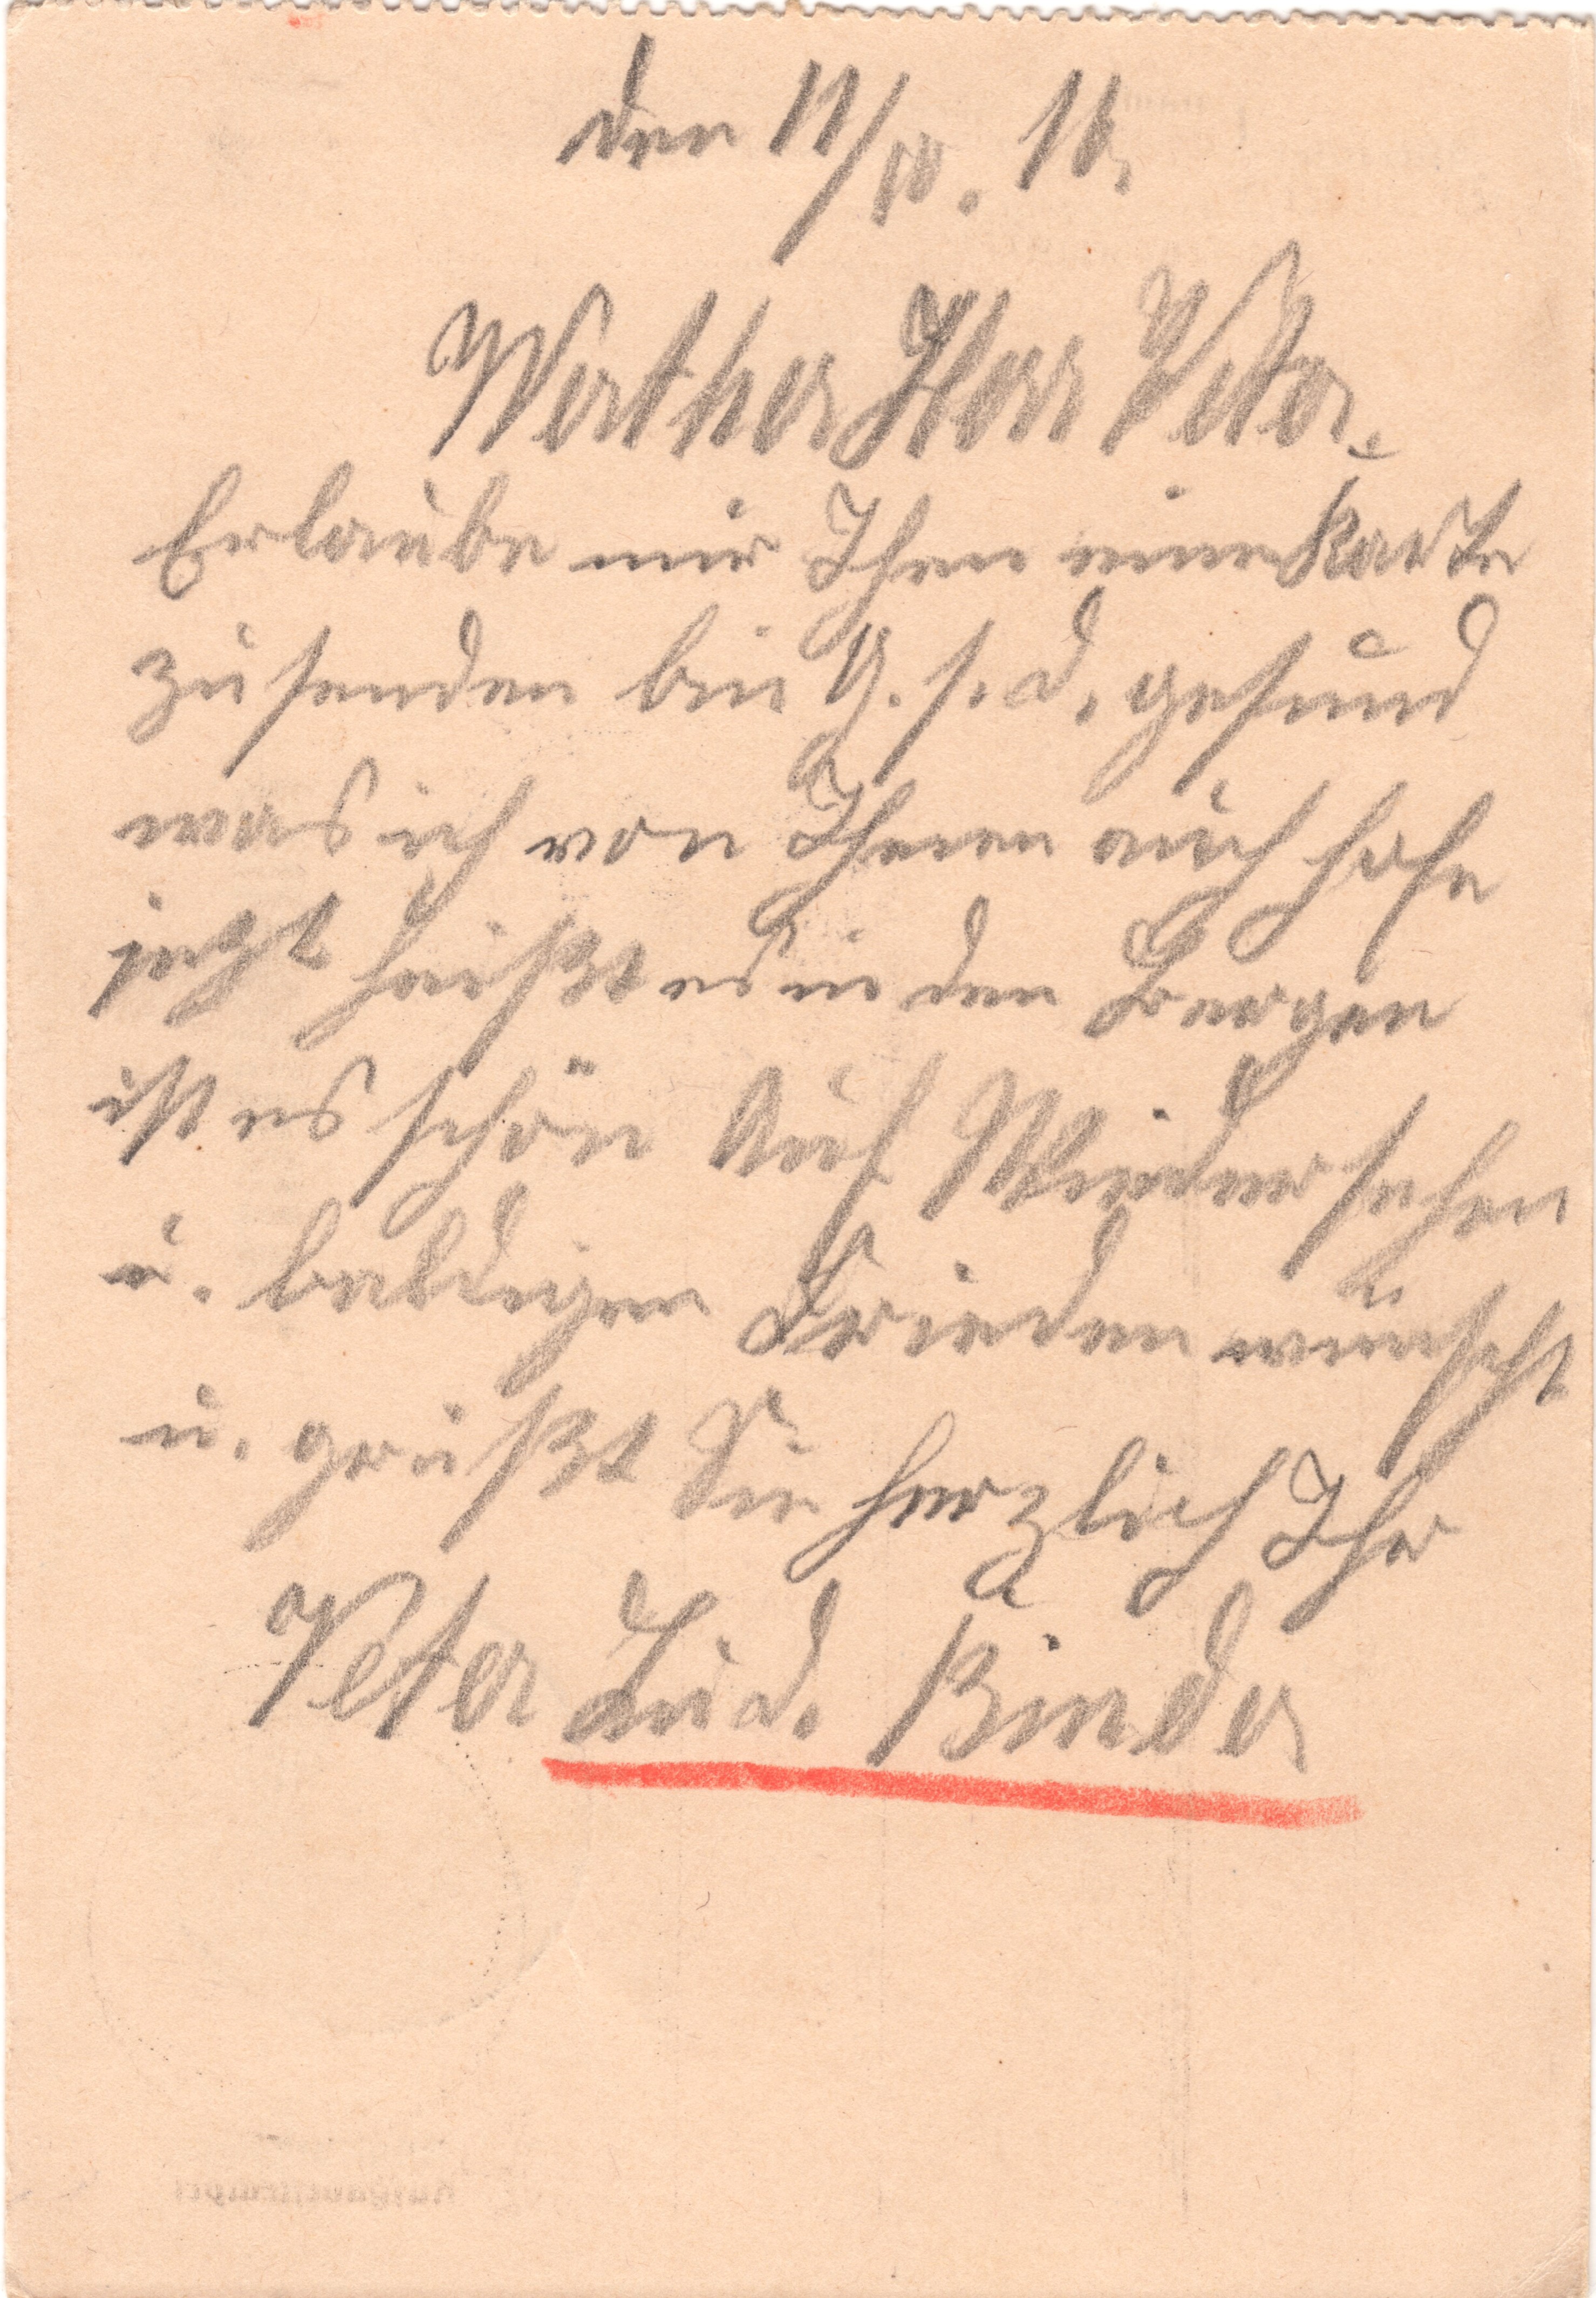 den 11/IV. 16.
Werther Herr Peter.
Erlaube mir Ihen eine Karte
zu senden bin G. s. d. gesund
was ich von Ihenen auch hofe
jetzt heißt es in den Bergen
ist es schön Auf Wiedersehen
u. baldigen Frieden wünscht
u. grüßt Sie herzlich Ihr
Peter Lud. Binder